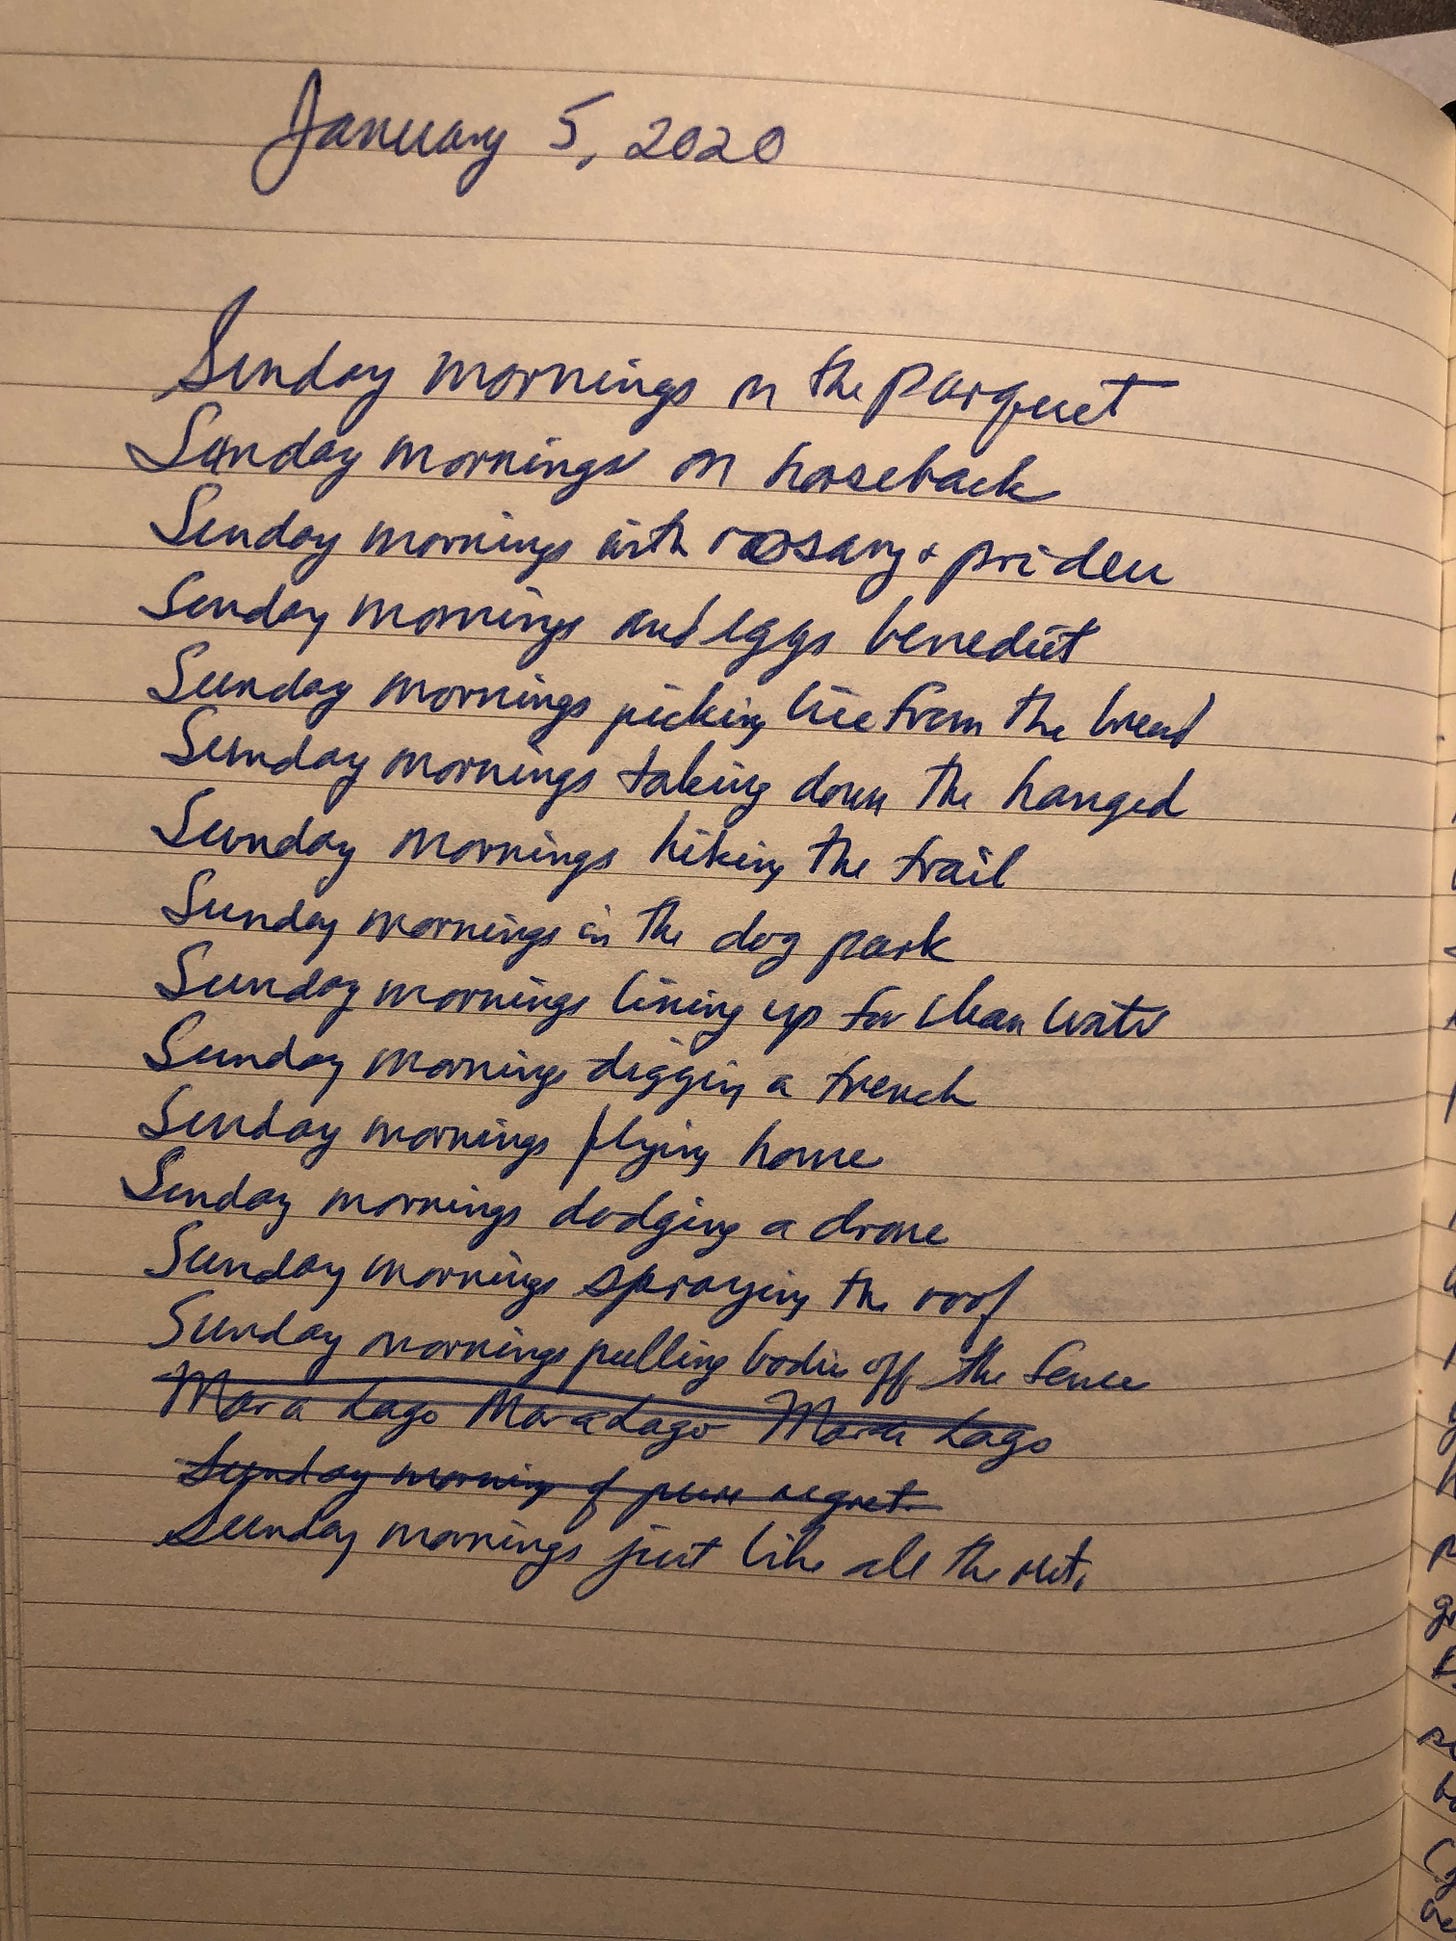 January 5, 2020
Sunday mornings on the parquet
Sunday mornings on horseback
Sunday mornings with rosary + pri dieu
Sunday mornings and eggs benedict
Sunday mornings picking lice from the bread
Sunday mornings taking down the hanged
Sunday mornings hiking the trail
Sunday mornings in the dog park
Sunday mornings lining up for clean water
Sunday mornings digging a trench
Sunday mornings flying home
Sunday mornings dodging a drone
Sunday mornings spraying the roof
Sunday mornings pulling bodies off the fence
Mara Lago Mara Lago Mara Lago
Sunday morning of pure regret
Sunday mornings just like all the rest.